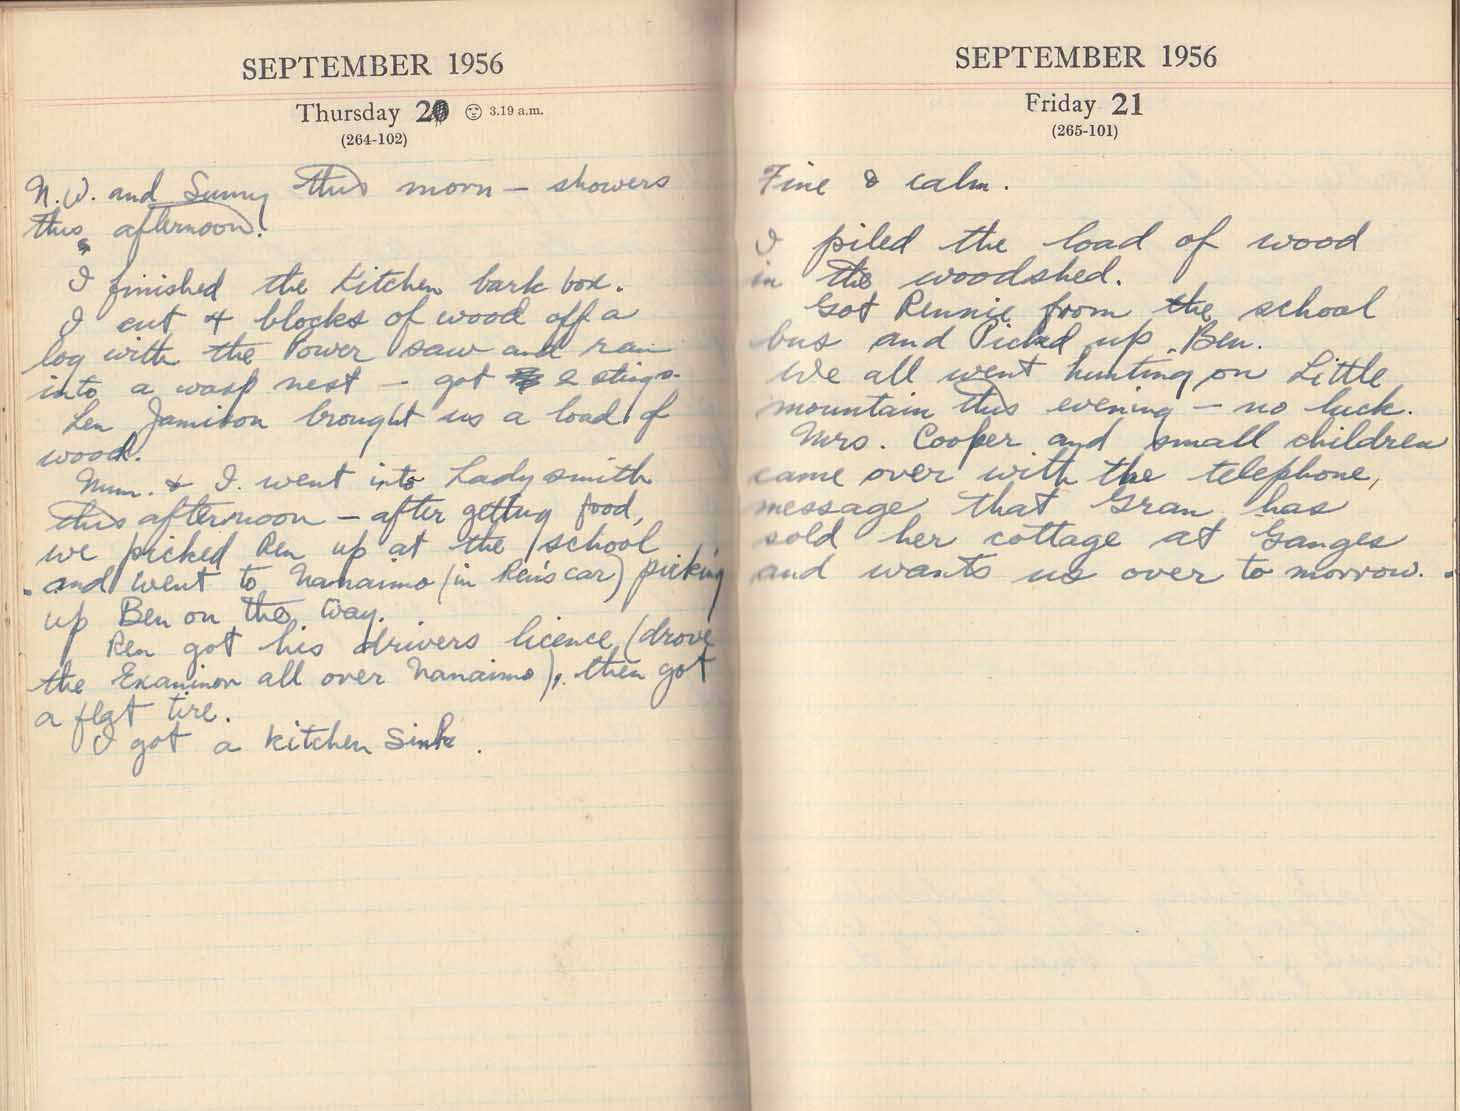 SEPTEMBER 1956
Thursday 20 3.19 a.m.
(264-102)
N.W. and Sunny this morn - showers
this afternoon.
I finished the Kitchen bark box.
I cut 4 blocks of wood off a
log with the Power saw and ran
into a wasp nest - got 2 stings.
Len Jamison brought us a load of
wood.
Mum. & I. went into Ladysmith
this afternoon - after getting food,
we picked Ren up at the school
and went to Nanaimo (in Ren's car) picking
up Ben on the way.
Ren got his drivers licence (drove
the Examinor all over Nanaimo), then got
a flat tire.
I got a kitchen Sink.
SEPTEMBER 1956
Friday 21
(265-101)
Fine & calm.
I piled the load of wood
in the woodshed.
Got Rennie from the school
bus and Picked up Ben.
We all went hunting on Little
mountain this evening - no luck.
Mrs. Cooper and small children
came over with the telephone,
message that Gran has
sold her cottage at Ganges
and wants us over to morrow.